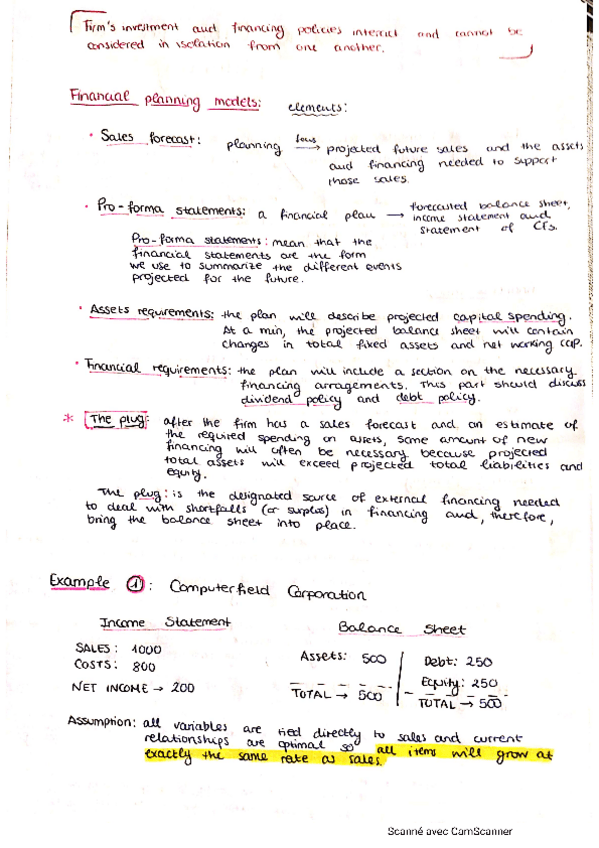 Firm's investment and financing policies interact and cannot be
considered in isolation from one another.
Financial planning models: elements:
• Sales forecast: planning focus → projected future sales and the assets
and financing needed to support
those sales.
• Pro-forma statements: a financial plan → forecasted balance sheet,
income statement and
statement of CFs.
Pro-forma statements: mean that the
financial statements are the form
we use to summarize the different events
projected for the future.
• Assets requirements: the plan will describe projected capital spending.
At a min, the projected balance sheet will contain
changes in total fixed assets and net working cap.
• Financial requirements: the plan will include a section on the necessary
financing arragements. This part should discuss
dividend policy and debt policy.
* The plug: after the firm has a sales forecast and an estimate of
the required spending on assets, some amount of new
financing will often be necessary because projected
total assets will exceed projected total liabilities and
equity.
The plug: is the designated source of external financing needed
to deal with shortfalls (or surplus) in financing and, therefore,
bring the balance sheet into place.
Example ①: Computerfield Corporation
Income Statement
SALES: 1000
COSTS: 800
NET INCOME → 200
Balance Sheet
Assets: 500 Debt: 250
Equity: 250
TOTAL → 500 TOTAL → 500
Assumption: all variables are tied directly to sales and current
relationships are optimal so all items will grow at
exactly the same rate as sales.
Scanné avec CamScanner